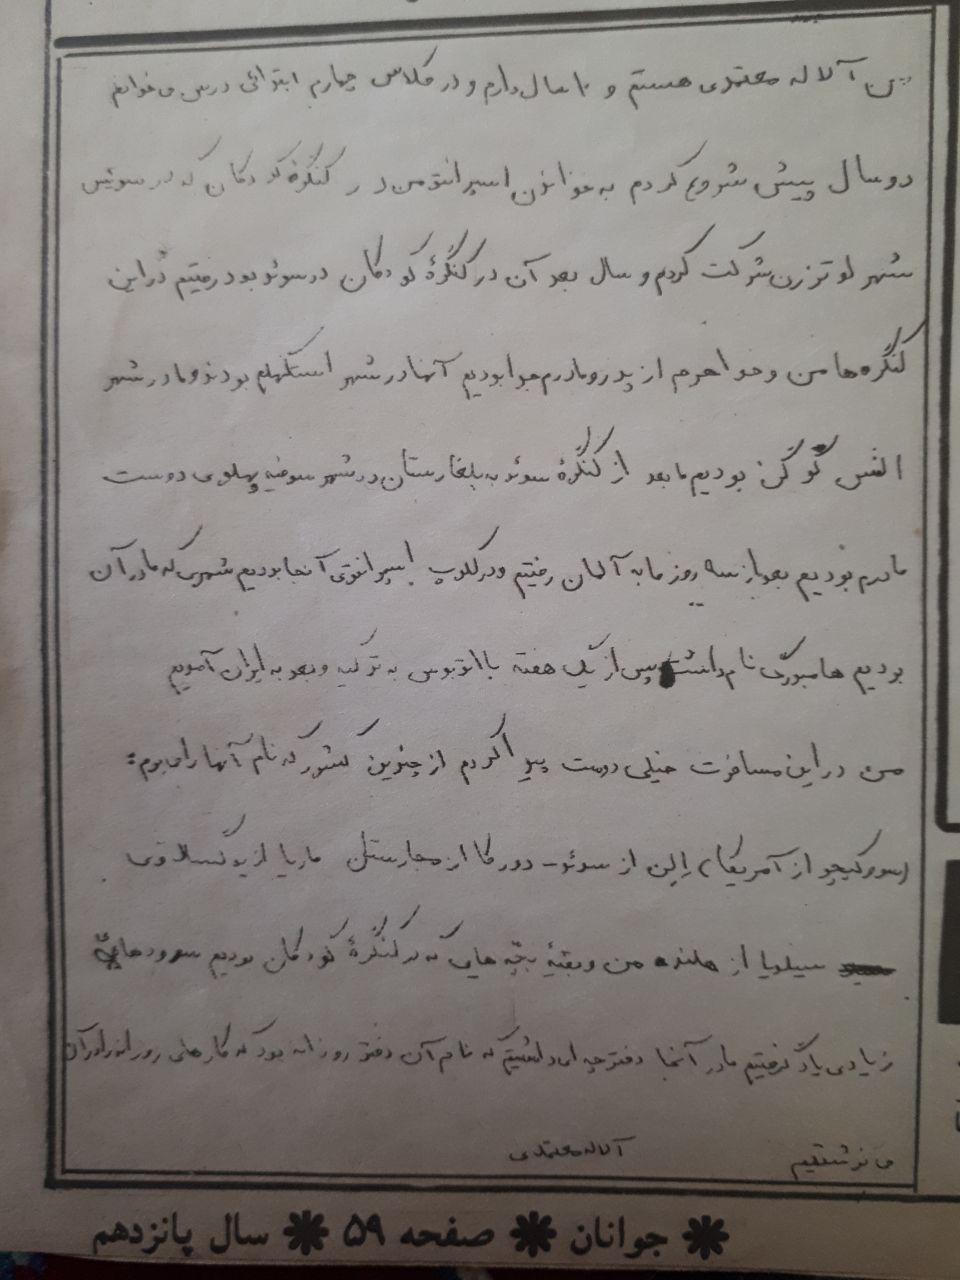 من آلاله معتمدی هستم و ۱۰ سال دارم و در کلاس چهارم ابتدائی درس می‌خوانم
دو سال پیش شروع کردم به خواندن اسپرانتو من در کنگرهٔ کودکان که در سوئیس
شهر لوتزرن شرکت کردم و سال بعد آن در کنگرهٔ کودکان در سوئد بود رفتیم در این
کنگره‌ها من و خواهرم از پدر و مادرم جدا بودیم آنها در شهر استکهلم بودند و ما در شهر
بودیم ما بعد از کنگرهٔ سوئد به بلغارستان در شهر صوفیه پهلوی دوست
مادرم بودیم بعد از سه روز ما به آلمان رفتیم و در کلوپ اسپرانتوی آنجا بودیم شهری که ما در آن
بودیم هامبورگ نام داشت پس از یک هفته با اتوبوس به ترکیه و بعد به ایران آمدیم
من در این مسافرت خیلی دوست پیدا کردم از چندین کشور که نام آنها را می‌برم:
از آمریکا) اِلِن از سوئد - دورکا از مجارستان ماریا از یوگسلاوی
سیلویا از هلند من و بقیهٔ بچّه هایی که در کنگرهٔ کودکان بودیم سرودهای
زیادی یاد گرفتیم ما در آنجا دفترچه ای داشتیم که نام آن دفتر روزانه بود که کارهای روزانه را در آن
می نوشتیم آلاله معتمدی
جوانان صفحه ۵۹ سال پانزدهم